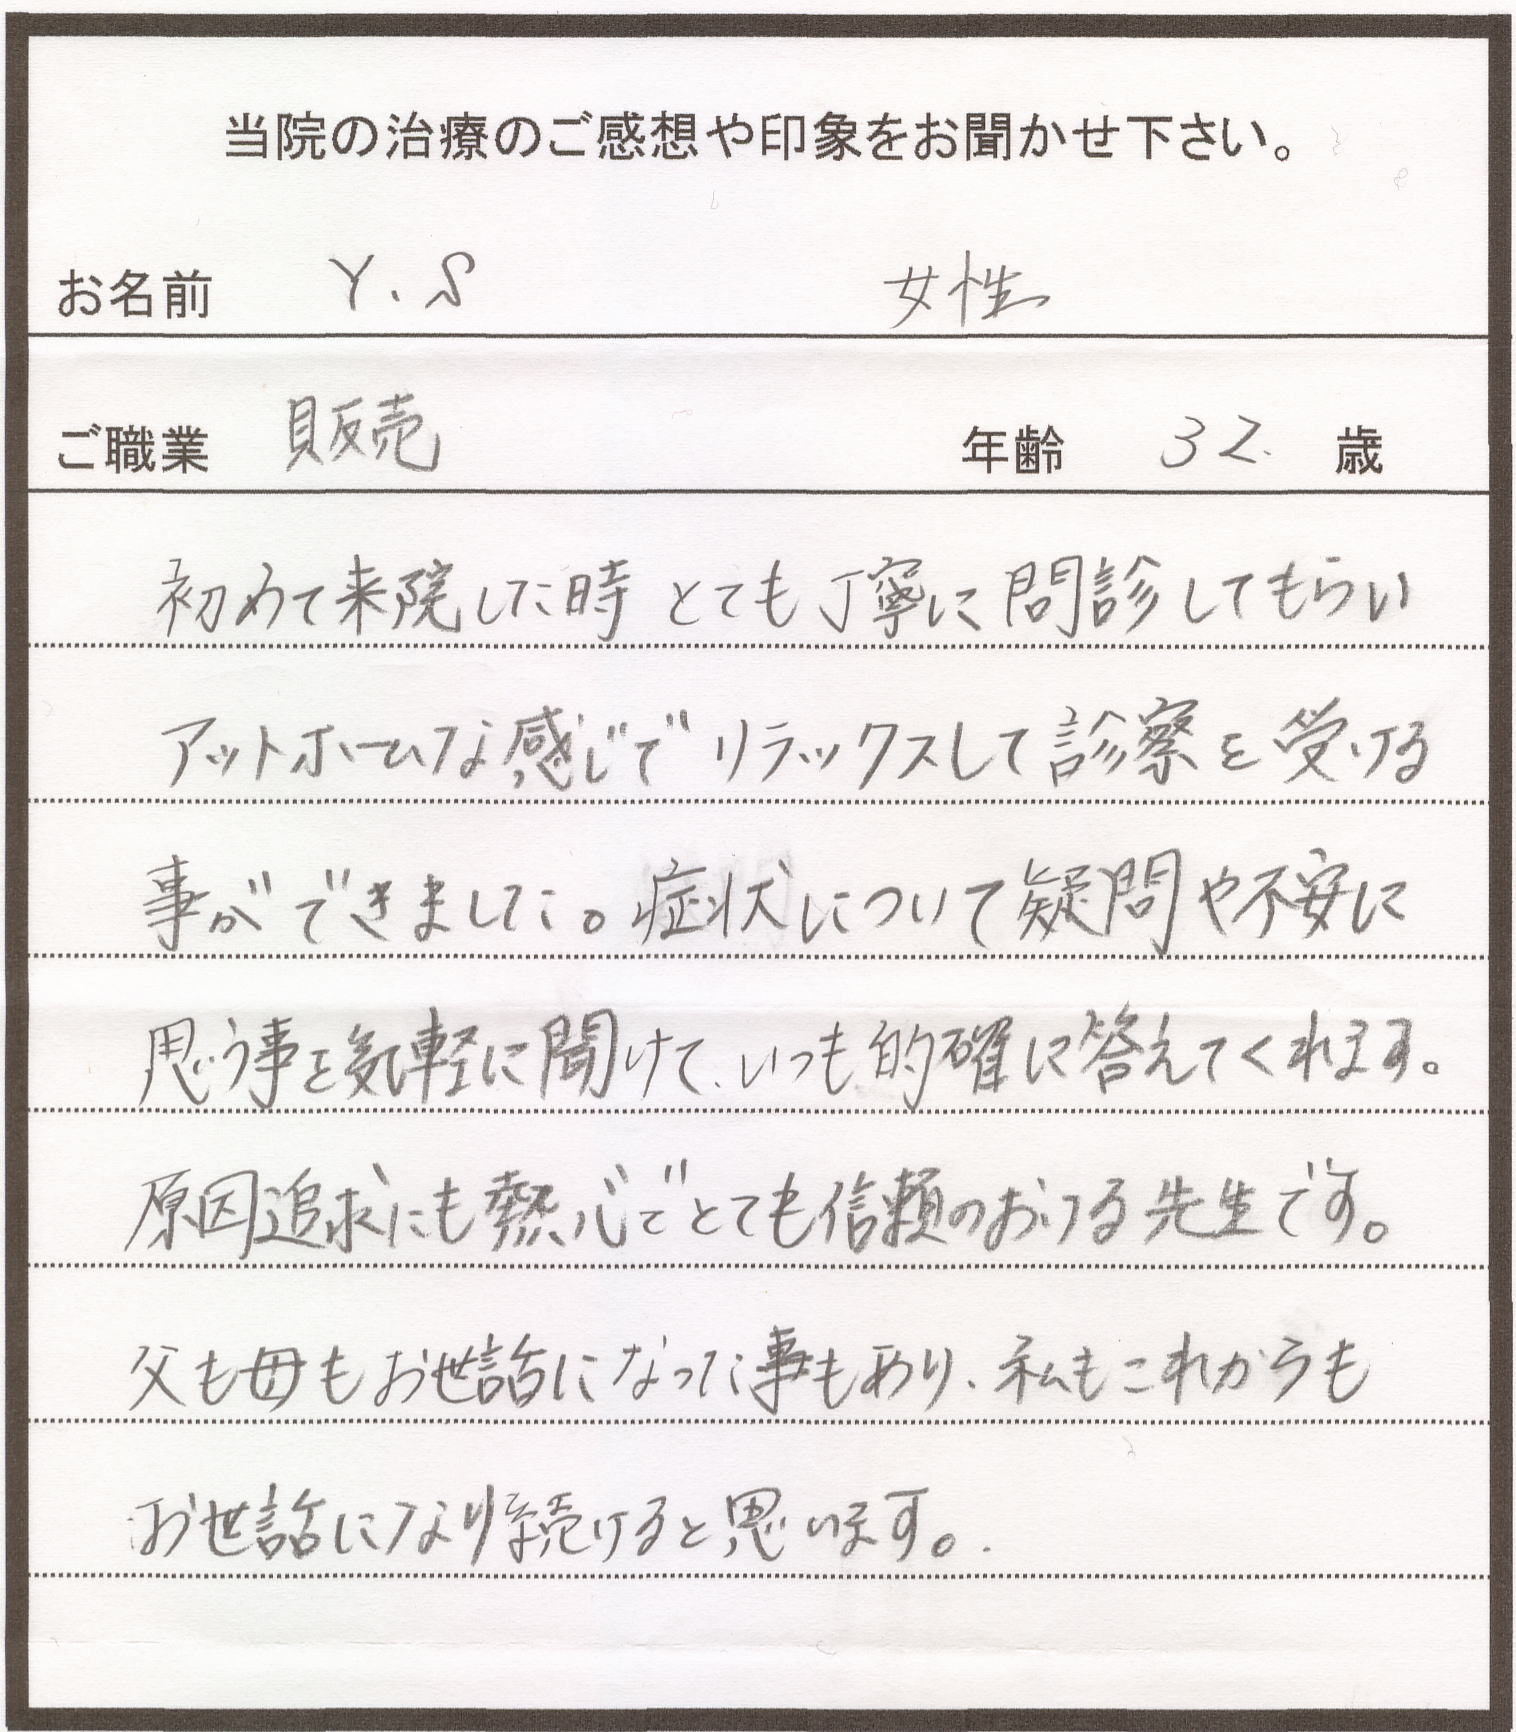 当院の治療のご感想や印象をお聞かせ下さい。
お名前 Y.S 女性
ご職業 販売 年齢 32. 歳
初めて来院した時 とても丁寧に問診してもらい
アットホームな感じでリラックスして診察を受ける
事ができました。症状について疑問や不安に
思う事を気軽に聞けて、いつも的確に答えてくれます。
原因追求にも熱心でとても信頼のおける先生です。
父も母もお世話になった事もあり、私もこれからも
お世話になり続けると思います。